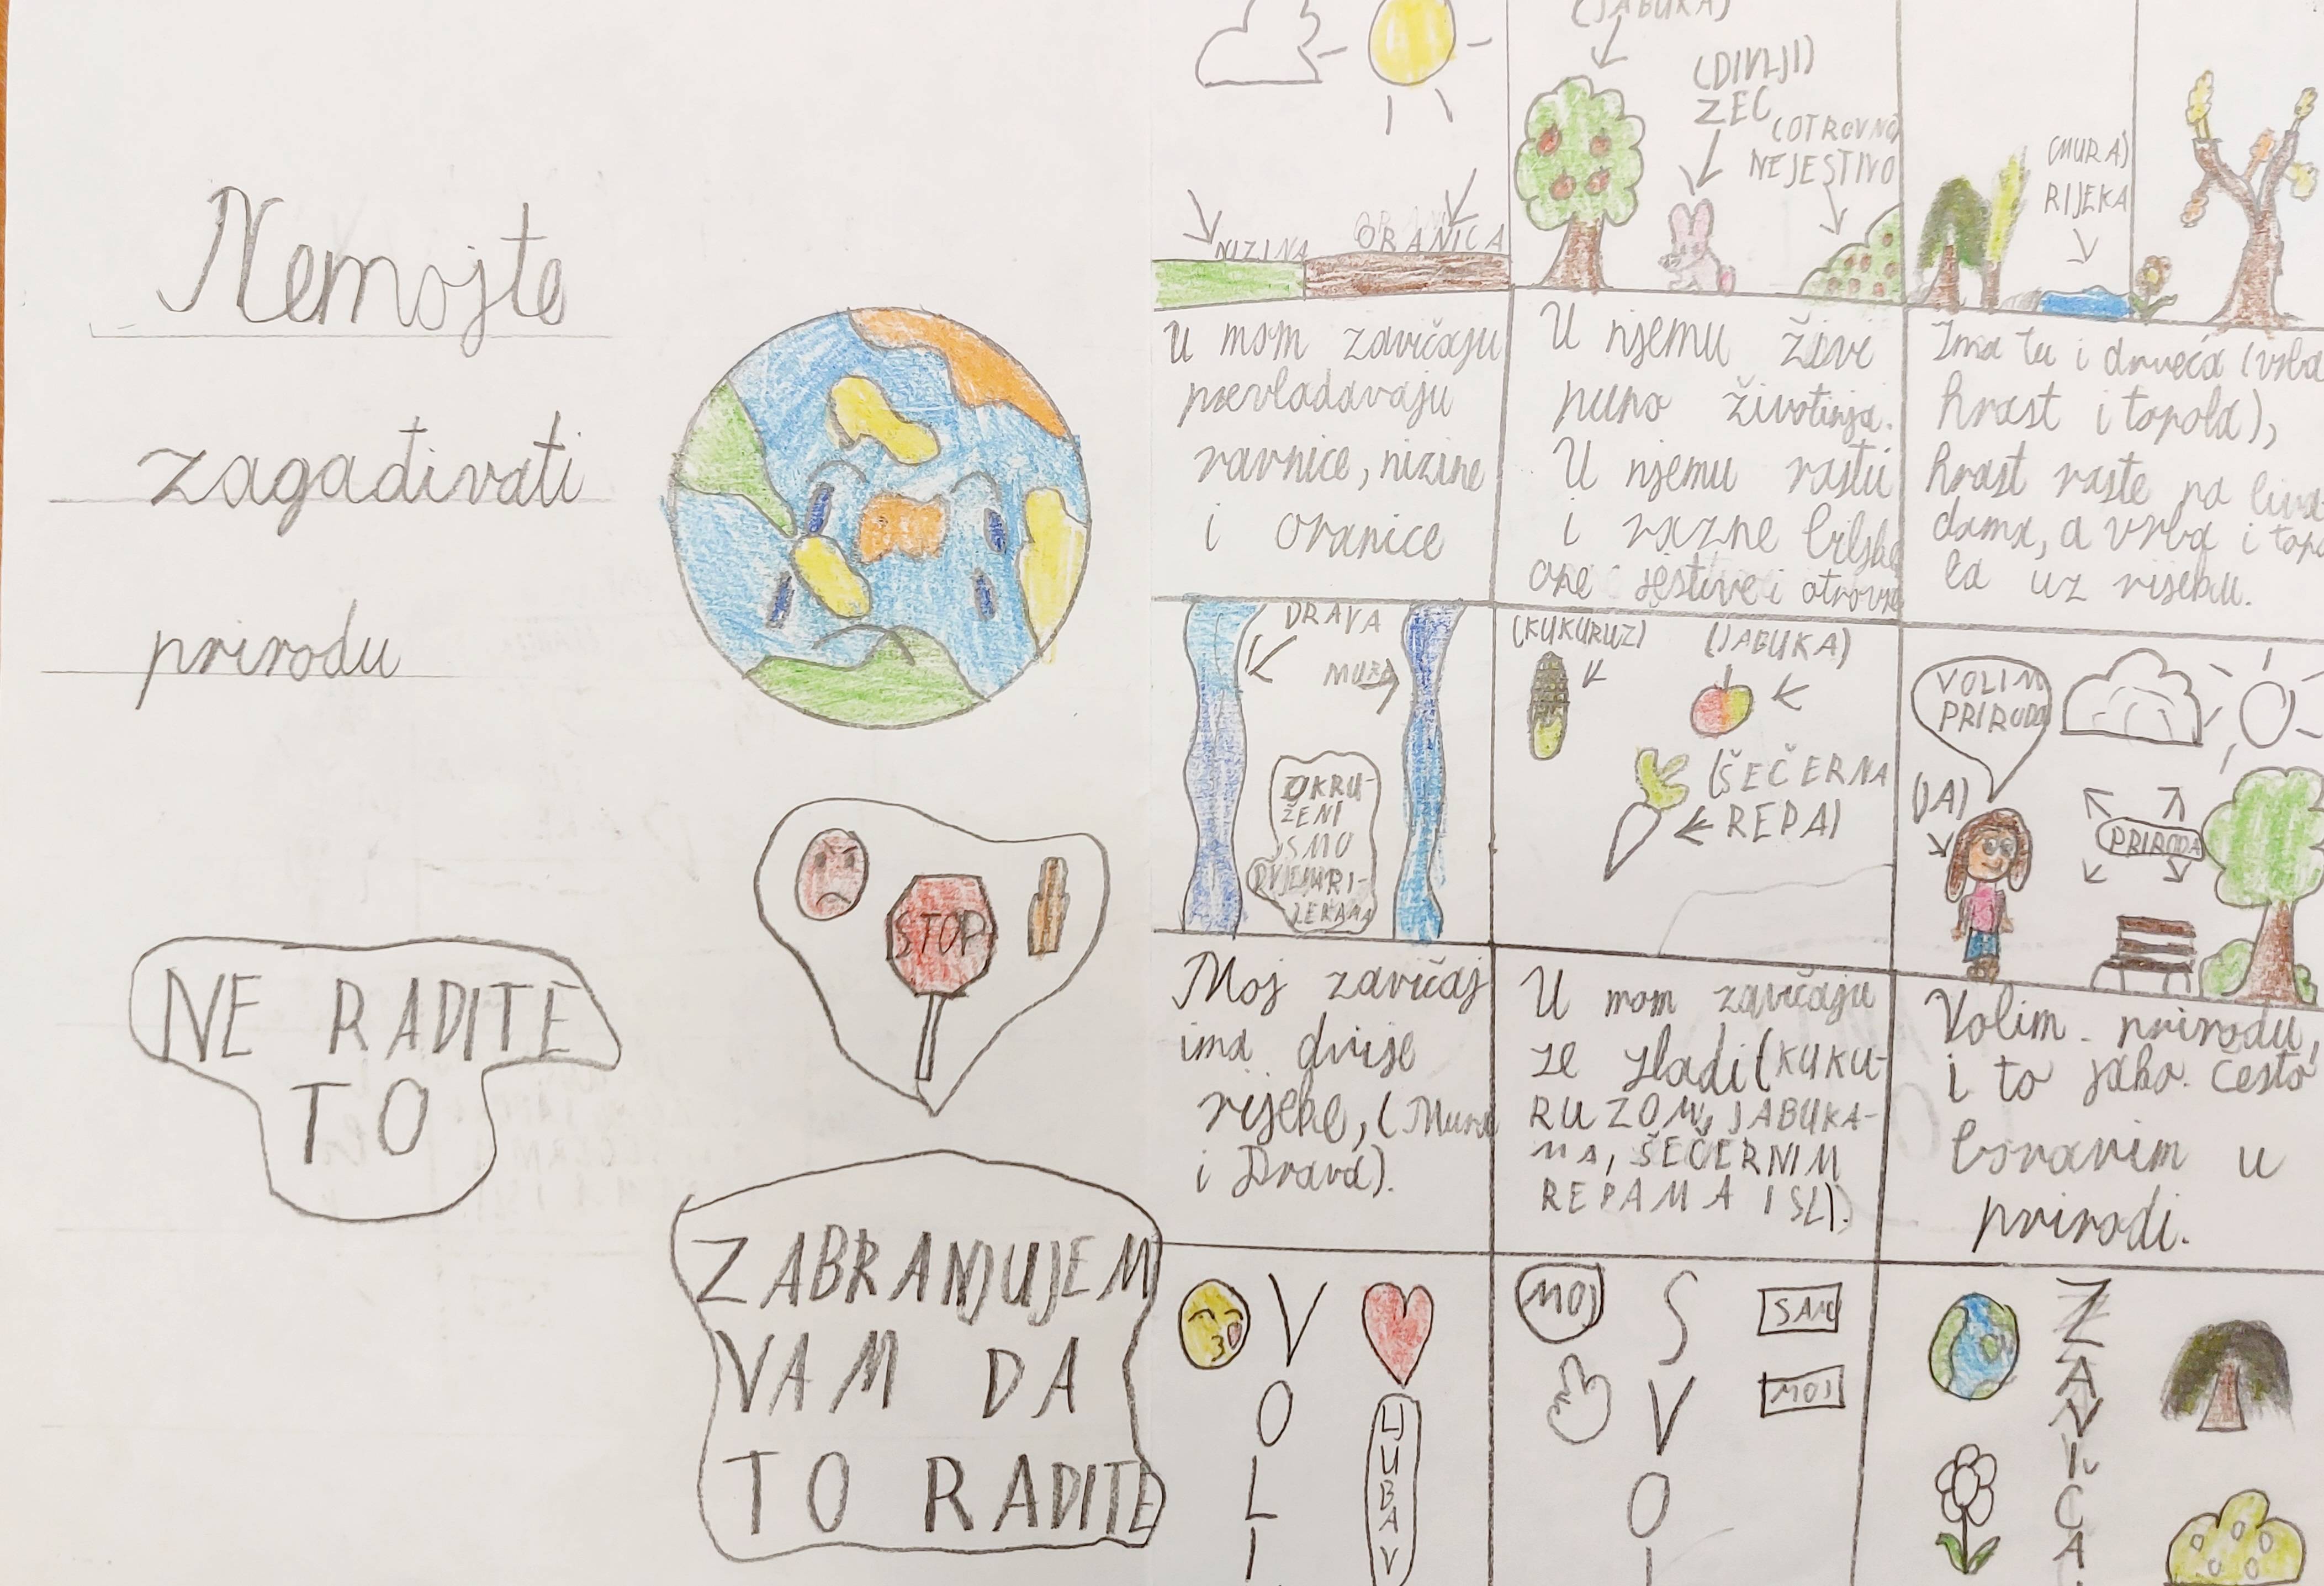 Nemojte
zagađivati
prirodu
STOP
NE RADITE
TO
ZABRANJUJEM
VAM DA
TO RADITE
NIZINA
ORANICA
U mom zavičaju
prevladavaju
ravnice, nizine
i oranice
(JABUKA)
(DIVLJI)
ZEC
(OTROVNO
NEJESTIVO
U njemu živi
puno životinja.
U njemu rastu
i razne biljke
one jestive i otrovne
(MURA)
RIJEKA
Ima tu i drveća (vrba
hrast i topola),
hrast raste na liva
dama, a vrba i topo
la uz rijeku.
DRAVA
MURA
OKRU-
ŽENI
SMO
DVJEMA RI-
JEKAMA
Moj zavičaj
ima dvije
rijeke, (Mura
i Drava).
(KUKURUZ)
(JABUKA)
(ŠEČERNA
REPA)
U mom zavičaju
se sladi (KUKU-
RUZOM, JABUKA-
MA, ŠEČERNIM
REPAMA I SL).
VOLIM
PRIRODU
(JA)
PRIRODA
Volim prirodu,
i to jako. Često
boravim u
prirodi.
V
O
L
I
LJ
U
B
A
V
MOJ
S
V
O
SAMO
MOJ
Z
A
V
I
Č
A